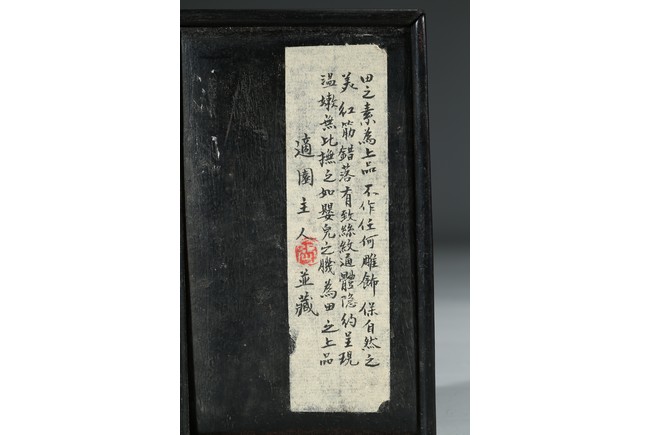 田之素為上品不作任何雕飾保自然之
美紅筋錯落有致絲紋通體隐約呈現
温嫩無比撫之如嬰兒之膚為田之上品
適園主人並藏